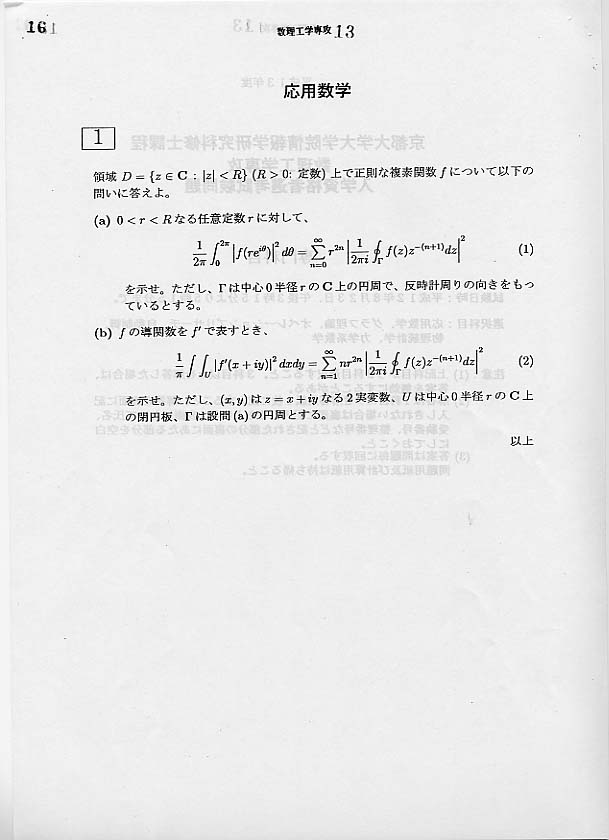 16
数理工学専攻 13
応用数学
1
領域 D = {z ∈ C : |z| < R} (R > 0: 定数) 上で正則な複素関数 f について以下の
問いに答えよ。
(a) 0 < r < R なる任意定数 r に対して、
\frac{1}{2\pi} \int_0^{2\pi} |f(re^{i\theta})|^2 d\theta = \sum_{n=0}^{\infty} r^{2n} \left| \frac{1}{2\pi i} \oint_\Gamma f(z)z^{-(n+1)}dz \right|^2 (1)
を示せ。ただし、Γは中心 0 半径 r の C 上の円周で、反時計周りの向きをもっ
ているとする。
(b) f の導関数を f′ で表すとき、
\frac{1}{\pi} \int\int_U |f'(x + iy)|^2 dxdy = \sum_{n=1}^{\infty} nr^{2n} \left| \frac{1}{2\pi i} \oint_\Gamma f(z)z^{-(n+1)}dz \right|^2 (2)
を示せ。ただし、(x, y) は z = x + iy なる 2 実変数、U は中心 0 半径 r の C 上
の閉円板、Γは設問 (a) の円周とする。
以上